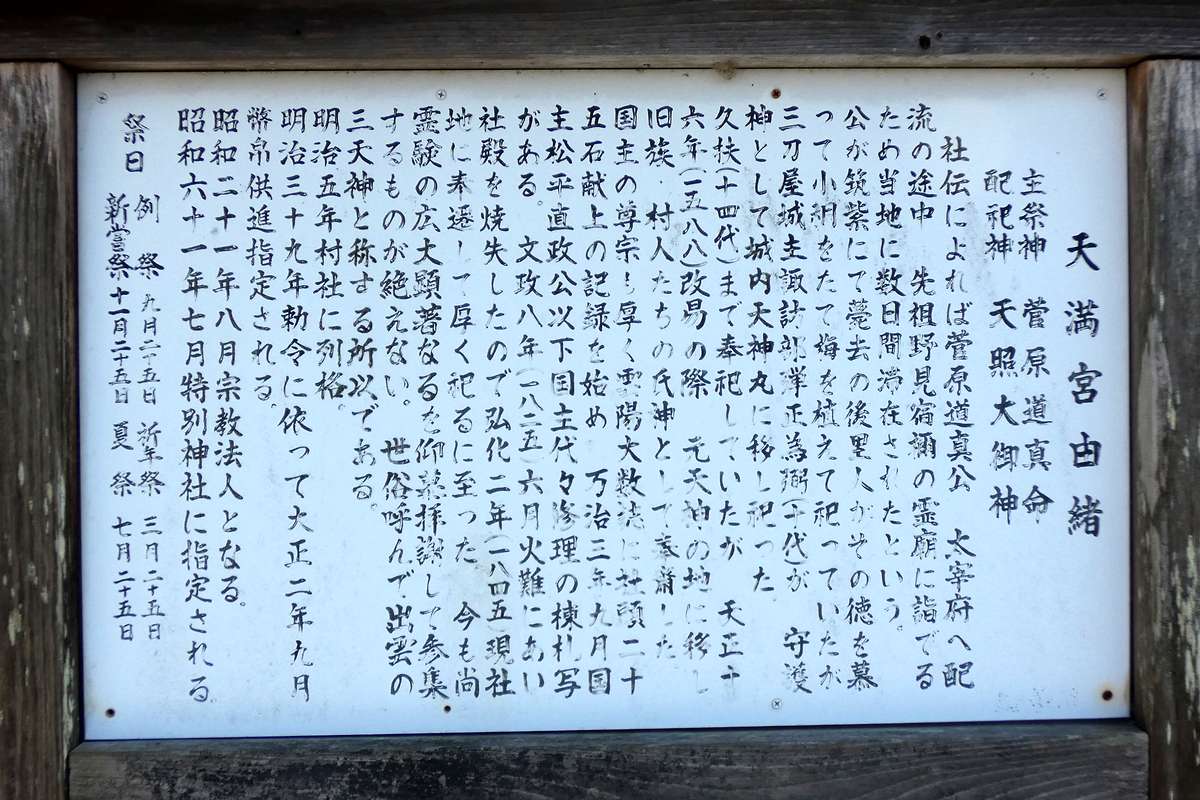 天満宮由緒
主祭神　菅原道真命
配祀神　天照大御神
社伝によれば菅原道真公　太宰府へ配
流の途中　先祖野見宿禰の霊廟に詣でる
ため当地に数日間滞在されたという。
公が筑紫にて薨去の後里人がその徳を慕
って小祠をたて梅を植えて祀っていたが
三刀屋城主諏訪部弾正為弼(十代)が　守護
神として城内天神丸に移し祀った
久扶(十四代)まで奉祀していたが　天正十
六年(一五八八)改易の際　元天神の地に移し
旧族　村人たちの氏神として斎した
国主の尊宗も厚く雲陽大数法に社頭二十
五石献上の記録を始め　万治三年九月国
主松平直政公以下国主代々修理の棟札写
がある。　文政八年(一八二五)六月火難にあい
社殿を焼失したので弘化二年(一八四五)現社
地に奉遷して厚く祀るに至った　今も尚
霊験の広大顕著なるを仰慕拝謝して参集
するものが絶えない。　世俗呼んで出雲の
三天神と称する所以である
明治五年村社に列格。
明治三十九年勅令に依って大正二年九月
幣帛供進指定される。
昭和二十一年八月宗教法人となる。
昭和六十一年七月特別神社に指定される
祭日　例　祭　九月二十五日　祈年祭　三月二十五日
新嘗祭　十一月二十五日　夏　祭　七月二十五日